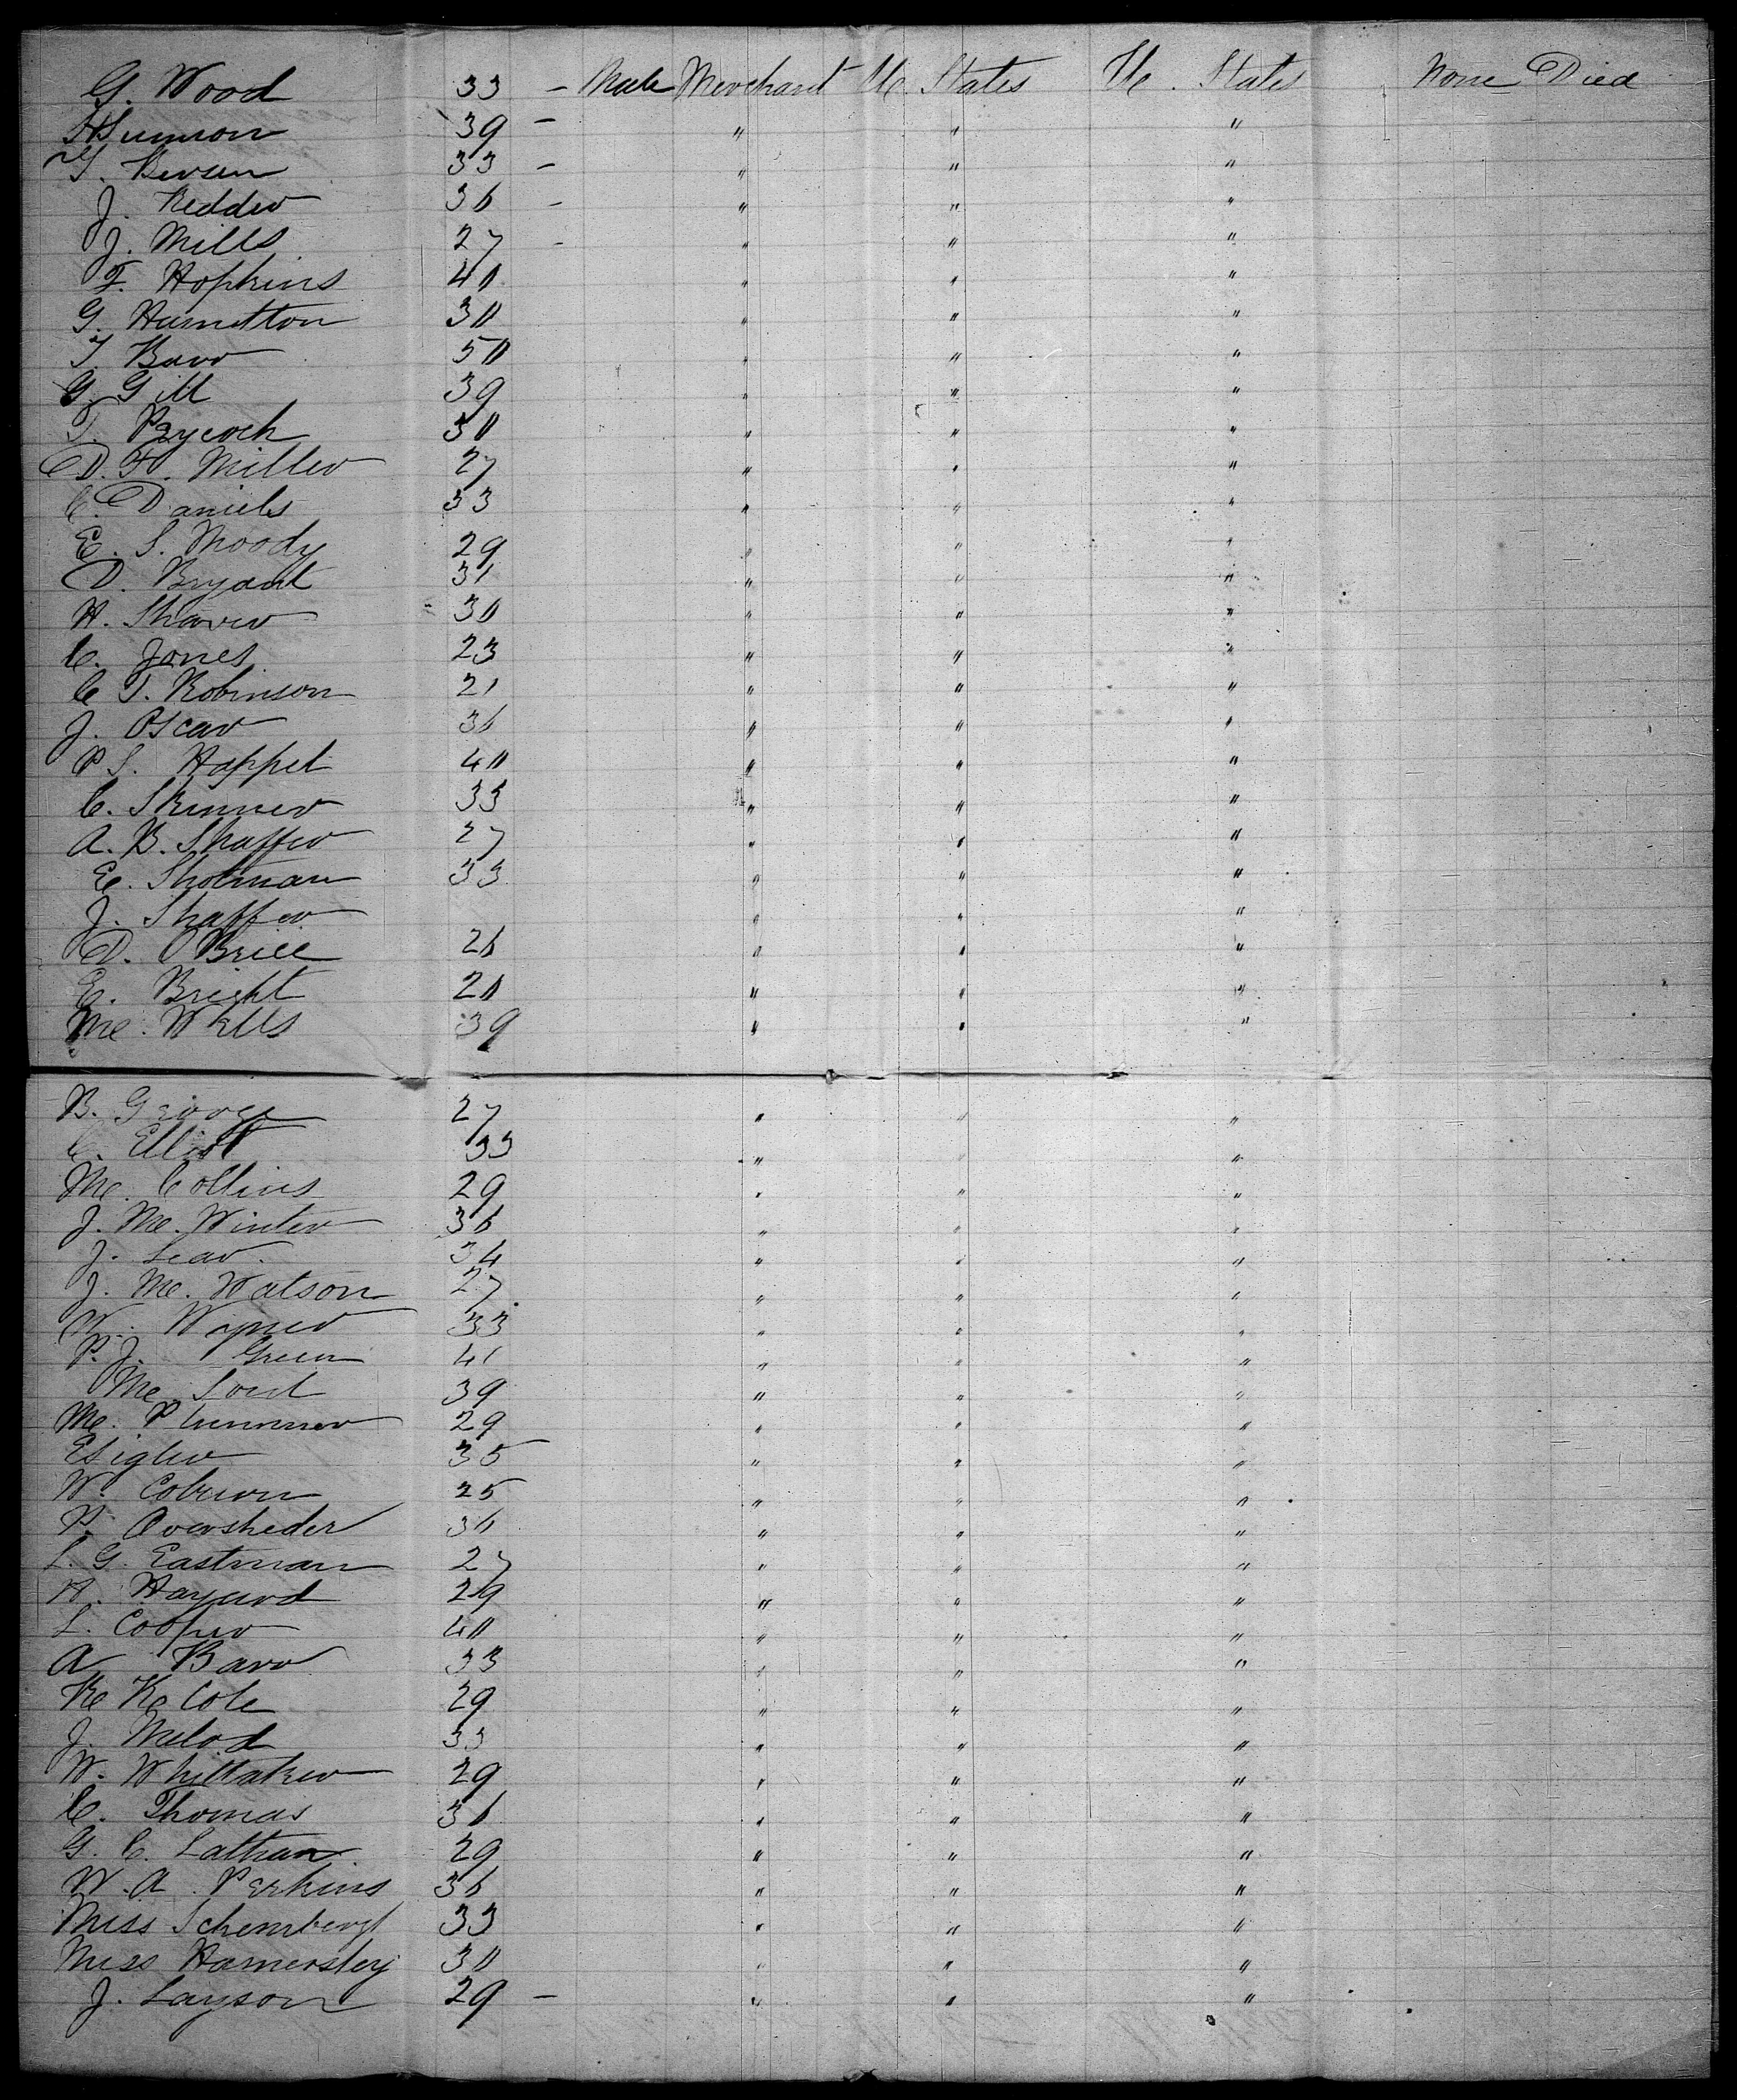 G. Wood 33 - Male Merchant U. States U. States None Died
39 - " " "
33 - " " "
J. Kedder 36 - " " "
J. Mills 27 - " " "
F. Hopkins 40 " " "
G. Hamilton 30 " " "
T. Barr 50 " " "
G. Gill 39 " " "
T. Paycock 30 " " "
D. F. Miller 27 " " "
C. Daniels 33 " " "
E. S. Moody 29 " " "
D. Bryant 31 " " "
H. Shaver 30 " " "
C. Jones 23 " " "
C T. Robinson 21 " " "
J. Oscar 36 " " "
P S. Happel 40 " " "
C. Skinner 33 " " "
A. B. Shaffer 27 " " "
E. Shotman 33 " " "
J. Shaffer " " "
D. OBrill 26 " " "
E. Bright 20 " " "
M. Wells 39 " " "
B. George 27 " " "
C. Elliot 33 " " "
M. Collins 29 " " "
J. M. Winter 36 " " "
J. Lear. 34 " " "
J. M. Watson 27 " " "
W. Wagner 33 " " "
P. J. Green 41 " " "
M. 39 " " "
M. Plummer 29 " " "
E Sigler 35 " " "
W. Coburn 25 " " "
P. Oversheder 36 " " "
L. G. Eastman 27 " " "
H. Hayward 29 " " "
L. Cooper 40 " " "
A Barr 33 " " "
K K Cole 29 " " "
J. 33 " " "
W. Whittaker 29 " " "
C. Thomas 36 " " "
G. C. Lathan 29 " " "
W. A. Perkins 36 " " "
Miss 33 " " "
Miss Hamersley 30 " " "
J. Layson 29 - " " "